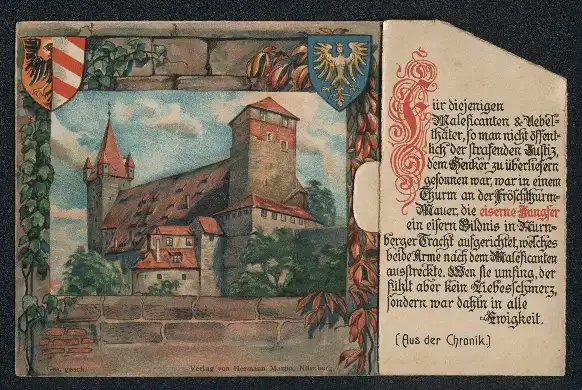 Für diejenigen
Maleficanten & Uebel-
thäter, so man nicht öffent-
lich der strafenden Justiz,
dem Henker zu überliefern
gesonnen war, war in einem
Thurm an der Fröschthurm-
Mauer, die eiserne Jungfer
ein eisern Bildnis in Nürn-
berger Tracht aufgerichtet, welches
beide Arme nach dem Maleficanten
ausstreckte. Wen sie umfing, der
fühlt aber kein Liebesschmerz,
sondern war dahin in alle
Ewigkeit.
(Aus der Chronik.)
Ges. gesch.
Verlag von Hermann Martin, Nürnburg.